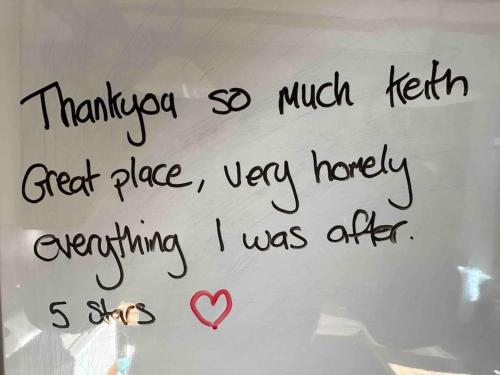 Thankyou so much Keith
Great place, very homely
everything I was after.
5 stars